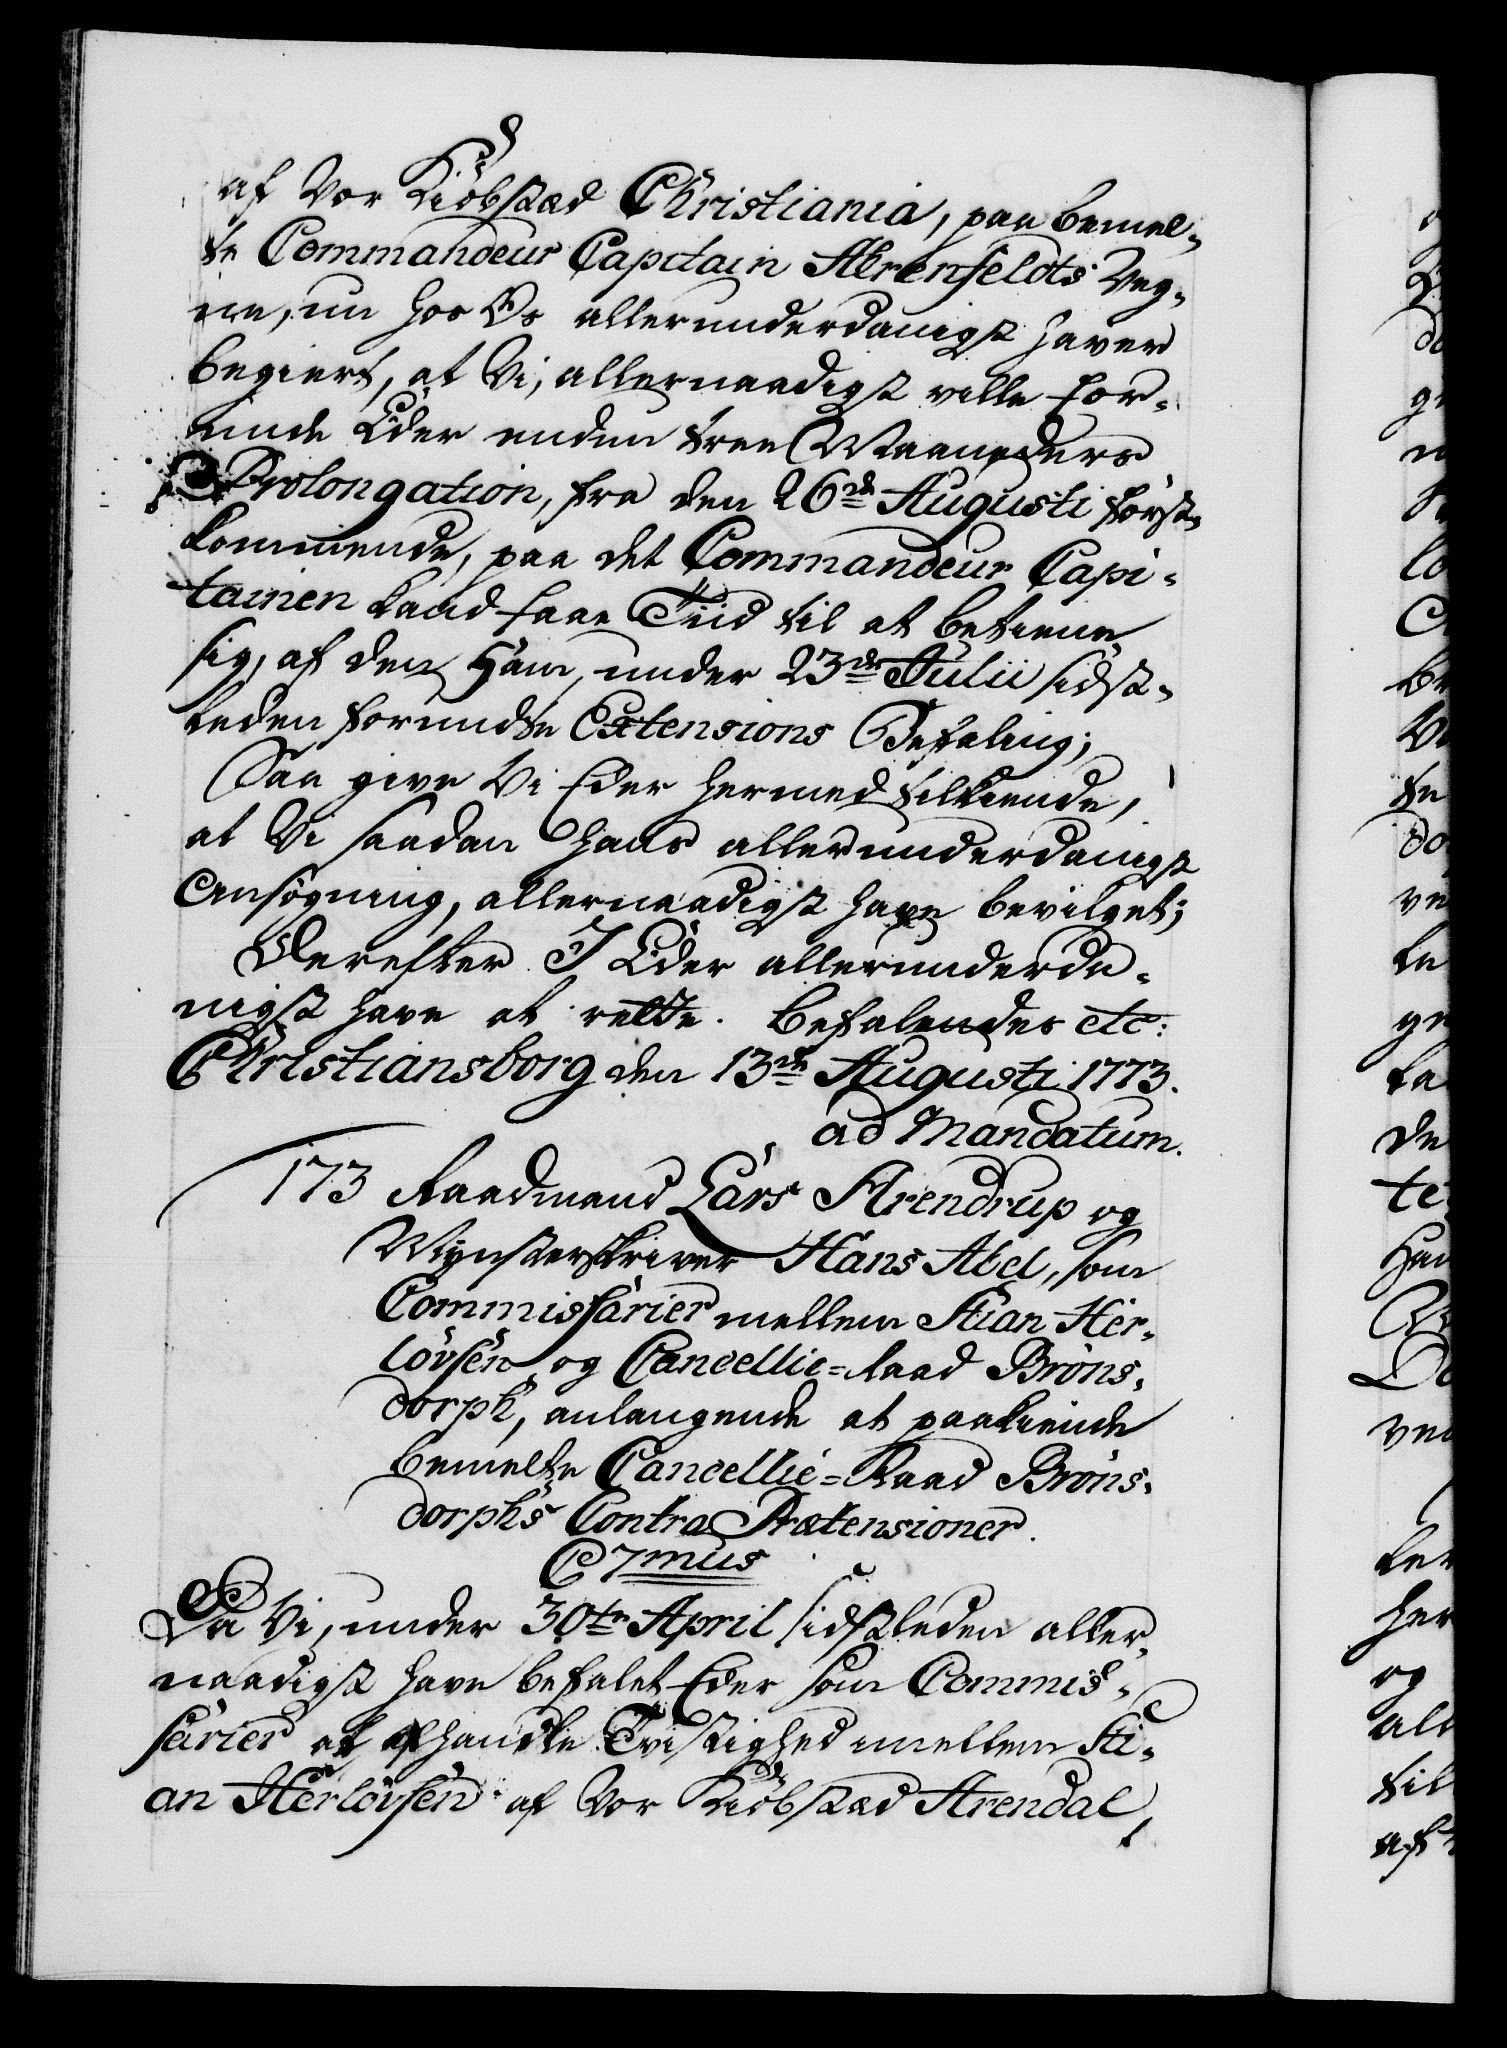 af Vor Kiöbstæd Christiania, paa bemel-
te Commandeur Capitain Ahrenfeldts Veg-
ne, nu hos Os allerunderdanigst haver
begiert, at Vi, allernaadigst ville for-
unde Eder enden tree Maaneders
Prolongation, fra den 26de Augusti först-
kommende, paa det Commandeur Capi-
tainen kand faae Tiid til at betiene
sig, af den Ham, under 23de Julii sidst-
leden forundte Extensions Befaling;
Saa give Vi Eder hermed tilkiende,
at Vi saadan Hans allerunderdanigst
Ansögning, allernaadigst have bevilget;
Derefter I Eder allerunderda-
nigst have at rette. Befalendes etc:
Christiansborg den 13de Augusti 1773.
ad Mandatum.
173 Raadmand Lars Arendrup og
Mynsterskriver Hans Abel, som
Commissarier mellem Stian Her-
lövsen og Cancellie-Raad Bröns-
dorph, anlangende at paakiende
bemelte Cancellie-Raad Bröns-
dorphs Contra Prætensioner.
C7mus
Da Vi, under 30te April sidstleden aller-
naadigst have befalet Eder som Commis-
sarier at afhandle Tvistighed imellem Sti-
an Herlövsen af Vor Kiöbstæd Arendal,